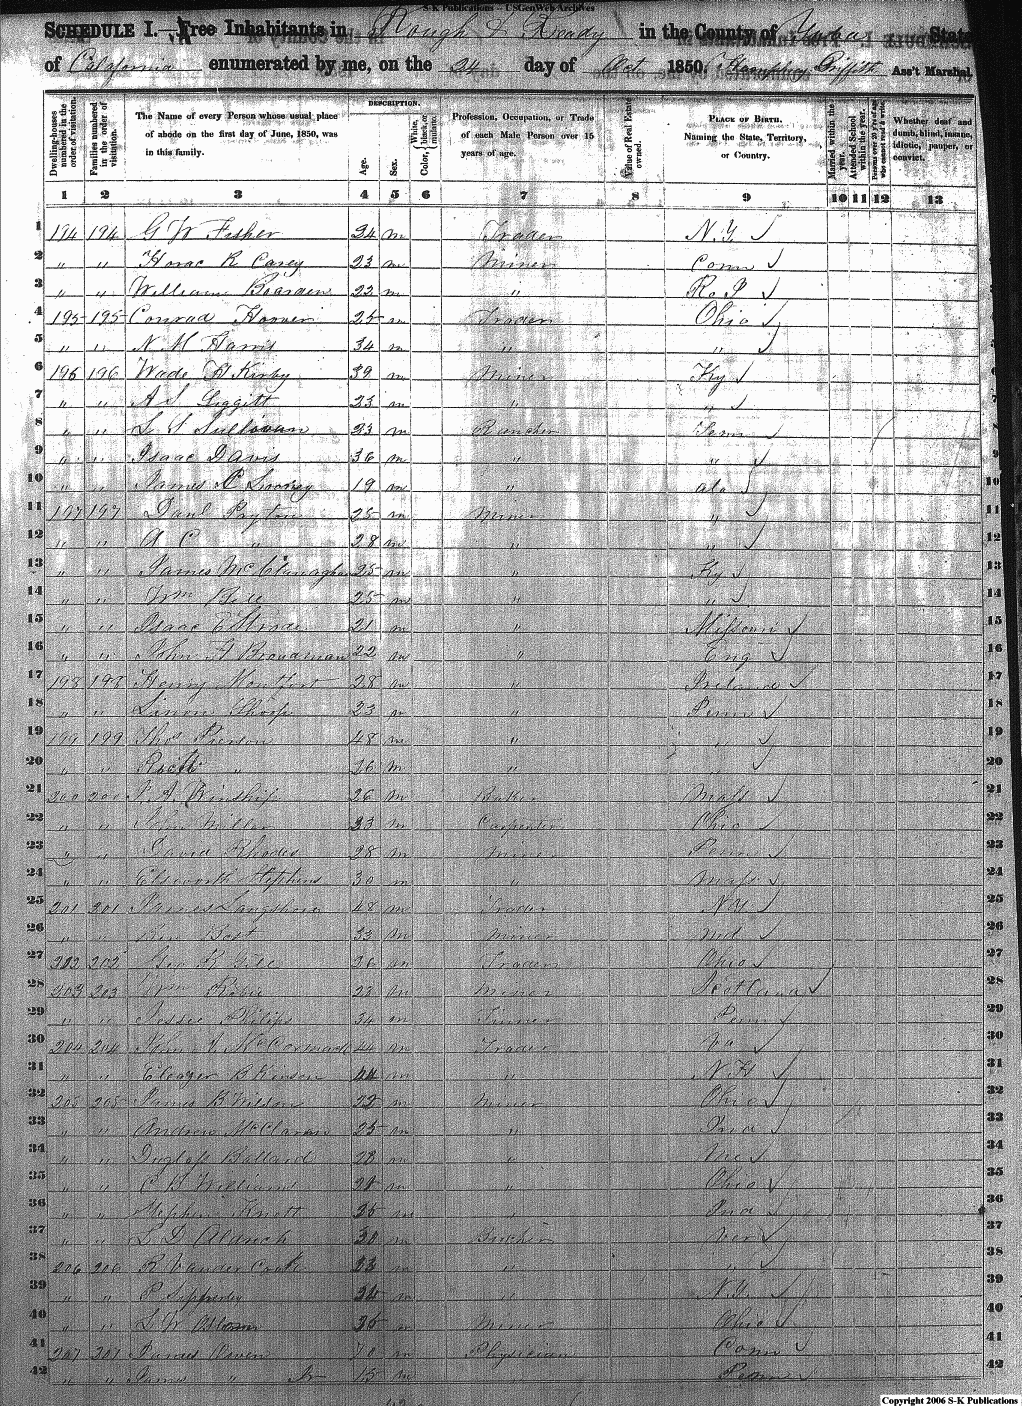 S-K Publications - USGenWeb Archives
SCHEDULE I.—Free Inhabitants in Rough & Ready in the County of Yuba State
of California enumerated by me, on the 24 day of Oct 1850. Griffith Ass't Marshal
Dwelling-houses numbered in the order of visitation.
Families numbered in the order of visitation.
The Name of every Person whose usual place of abode on the first day of June, 1850, was in this family.
DESCRIPTION.
Age.
Sex.
Color, White, black, or mulatto.
Profession, Occupation, or Trade of each Male Person over 15 years of age.
Value of Real Estate owned.
PLACE OF BIRTH. Naming the State, Territory, or Country.
Married within the year.
Attended School within the year.
Persons over 20 y'rs of age who cannot read & write.
Whether deaf and dumb, blind, insane, idiotic, pauper, or convict.
1 2 3 4 5 6 7 8 9 10 11 12 13
1 194 194 G W Fisher 34 m Trader N.Y. 1
2 " " Horac R Carey 23 m Miner Conn 2
3 " " William 22 m " R. I 3
4 195 195 Conrad Hoover 25 m Trader Ohio 4
5 " " N. M Harris 34 m " " 5
6 196 196 Wade H Kirby 39 m Miner Ky 6
7 " " A S Liggitt 23 m " " 7
8 " " L S Sullivan 23 m Rancher Tenn 8
9 " " Isaac Davis 36 m " " 9
10 " " James C 19 m " Ala 10
11 197 197 Danl Peyton 25 m Miner " 11
12 " " A C " 28 m " " 12
13 " " James McClanaghan 25 m " Ky 13
14 " " Wm 25 m " " 14
15 " " Isaac 21 m " Missouri 15
16 " " John 22 m " Eng 16
17 198 198 Henry Montfort 28 m " Ireland 17
18 " " 23 m " Penn 18
19 199 199 Thos Pierson 48 m " " 19
20 " " " 26 m " " 20
21 200 200 A. Winship 26 m Baker Mass 21
22 " " John Miller 33 m Carpenter Ohio 22
23 " " David Rhodes 28 m Miner Penn 23
24 " " Elsworth Stephens 30 m " Mass 24
25 201 201 48 m Trader N.Y 25
26 " " 33 m Miner Md 26
27 202 202 Geo Gill 26 m Trader Ohio 27
28 203 203 Wm 23 m Miner Scotland 28
29 " " Jessie Philips 34 m Tinner Penn 29
30 204 204 John McCormack 44 m Trader Va 30
31 " " B 44 m " N.H 31
32 205 205 James B Wilson 22 m Miner Ohio 32
33 " " Andrew McClaran 25 m " Ind 33
34 " " Duglass Ballard 28 m " Me 34
35 " " C B William m " Ohio 35
36 " " Stephen Knott 25 m " Ind 36
37 " " L D Aldrich 30 m Bucher Ver 37
38 206 206 R Vander Cook 23 m " " 38
39 " " P 34 m " N.Y. 39
40 " " L W 35 m Miner Ohio 40
41 207 207 James 70 m Physician Conn 41
42 " " James " Jr 15 m Penn 42
Copyright 2006 S-K Publications